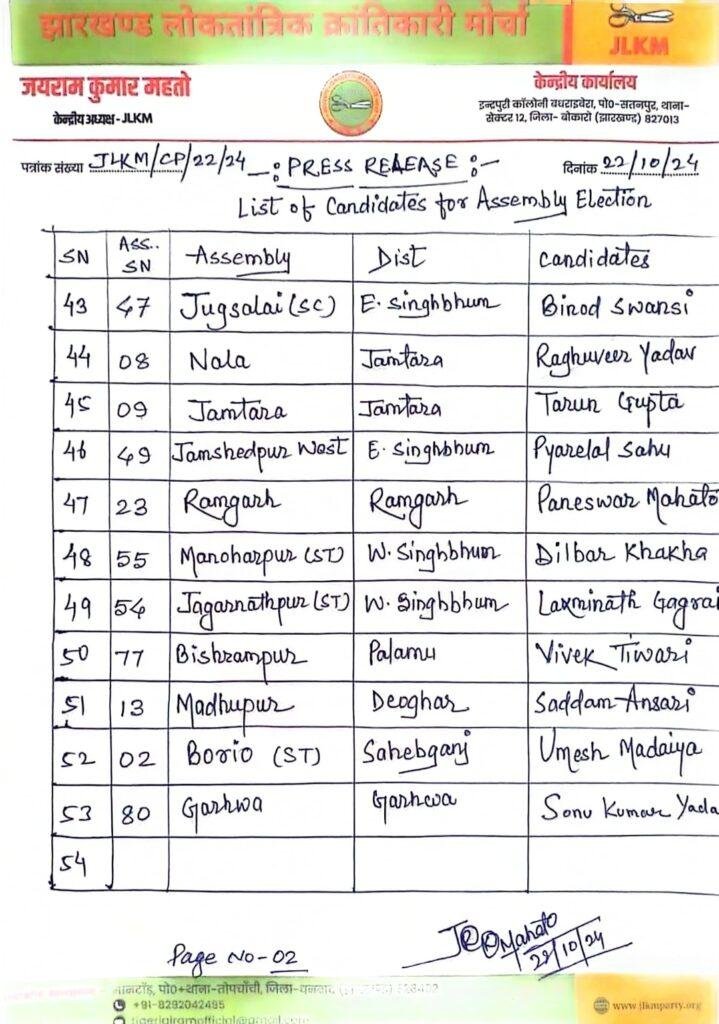 झारखण्ड लोकतांत्रिक क्रांतिकारी मोर्चा
JLKM
जयराम कुमार महतो
केन्द्रीय अध्यक्ष - JLKM
केन्द्रीय कार्यालय
इन्द्रपुरी कॉलोनी बधराइबेरा, पो0-सतनपुर, थाना-
सेक्टर 12, जिला- बोकारो (झारखण्ड) 827013
पत्रांक संख्या JLKM/CP/22/24 -: PRESS RELEASE :- दिनांक 22/10/24
List of Candidates for Assembly Election
SN Ass.. SN Assembly Dist Candidates
43 47 Jugsalai (SC) E. Singhbhum Binod Swansi
44 08 Nala Jamtara Raghuveer Yadav
45 09 Jamtara Jamtara Tarun Gupta
46 49 Jamshedpur West E. Singhbhum Pyarelal Sahu
47 23 Ramgarh Ramgarh Paneswar Mahato
48 55 Manoharpur (ST) W. Singhbhum Dilbar Khakha
49 54 Jagarnathpur (ST) W. Singhbhum Laxminath Gagrai
50 77 Bishrampur Palamu Vivek Tiwari
51 13 Madhupur Deoghar Saddam Ansari
52 02 Borio (ST) Sahebganj Umesh Madaiya
53 80 Garhwa Garhwa Sonu Kumar Yada
54
Mahato
22/10/24
Page No-02
पो0+थाना-तोपचाँची, जिला-धनबाद
+91-8292042495
www.jlkmparty.org
tigerjairamofficial@gmail.com